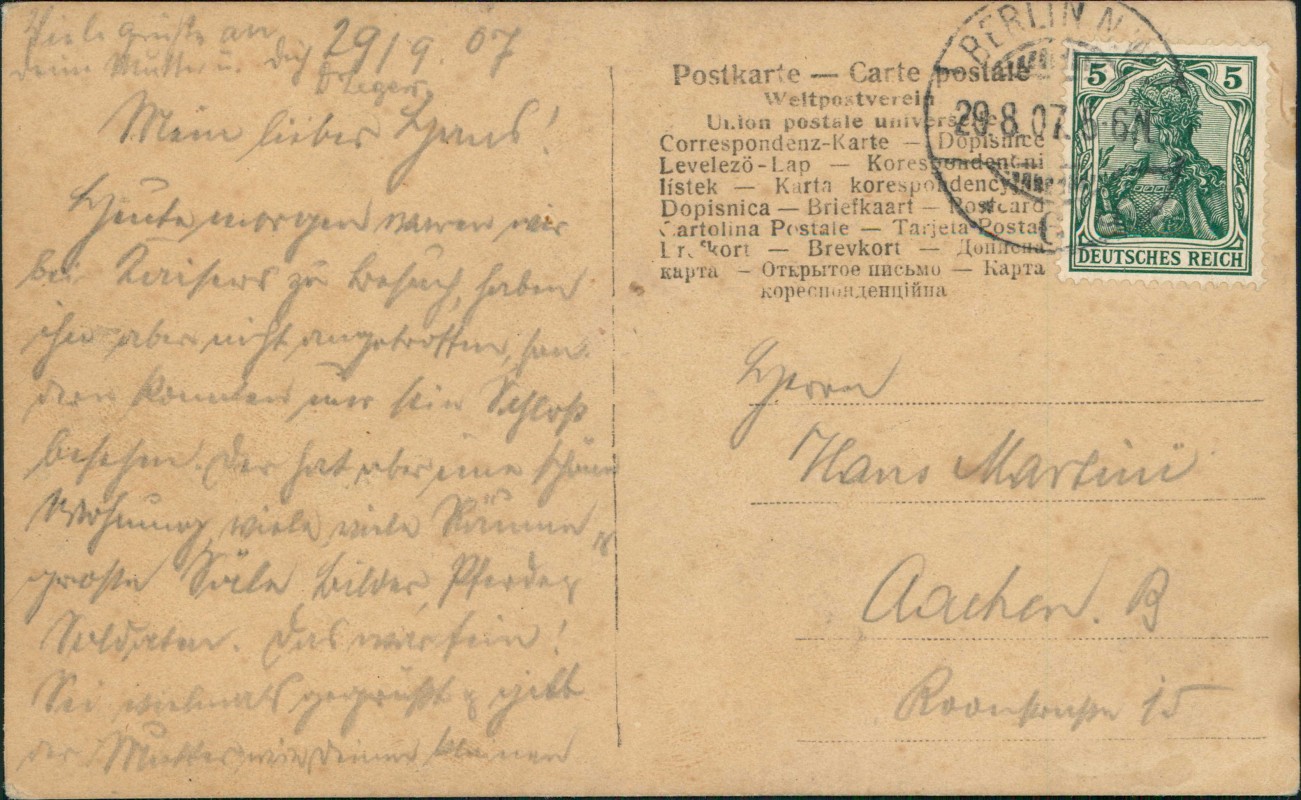 Viele Grüße an
deine Mutter u. Dich
29/9 07
Mein lieber Hans!
Heute morgen waren wir
bei Kaisers zu Besuch, haben
ihn aber nicht angetroffen, son-
dern konnten nur sein Schloß
besehen. Der hat aber eine schöne
Wohnung, viele viele Räume,
große Säle Bilder, Pferde &
Soldaten. Das war fein!
Sei vielmals gegrüßt &
der Mutter wie Deiner kleinen
Postkarte — Carte postale
Weltpostverein
Union postale universelle
Correspondenz-Karte — Dopisnice
Levelező-Lap — Korespondenční
lístek — Karta korespondencyjna
Dopisnica — Briefkaart — Postcard
Cartolina Postale — Tarjeta Postal
Brefkort — Brevkort — Дописна
карта — Открытое письмо — Карта
кореспонденційна
BERLIN N.W.
29.8.07. 5-6N
* 6
5 5
DEUTSCHES REICH
Herrn
Hans Martini
Aachen. B
Roonstraße 15